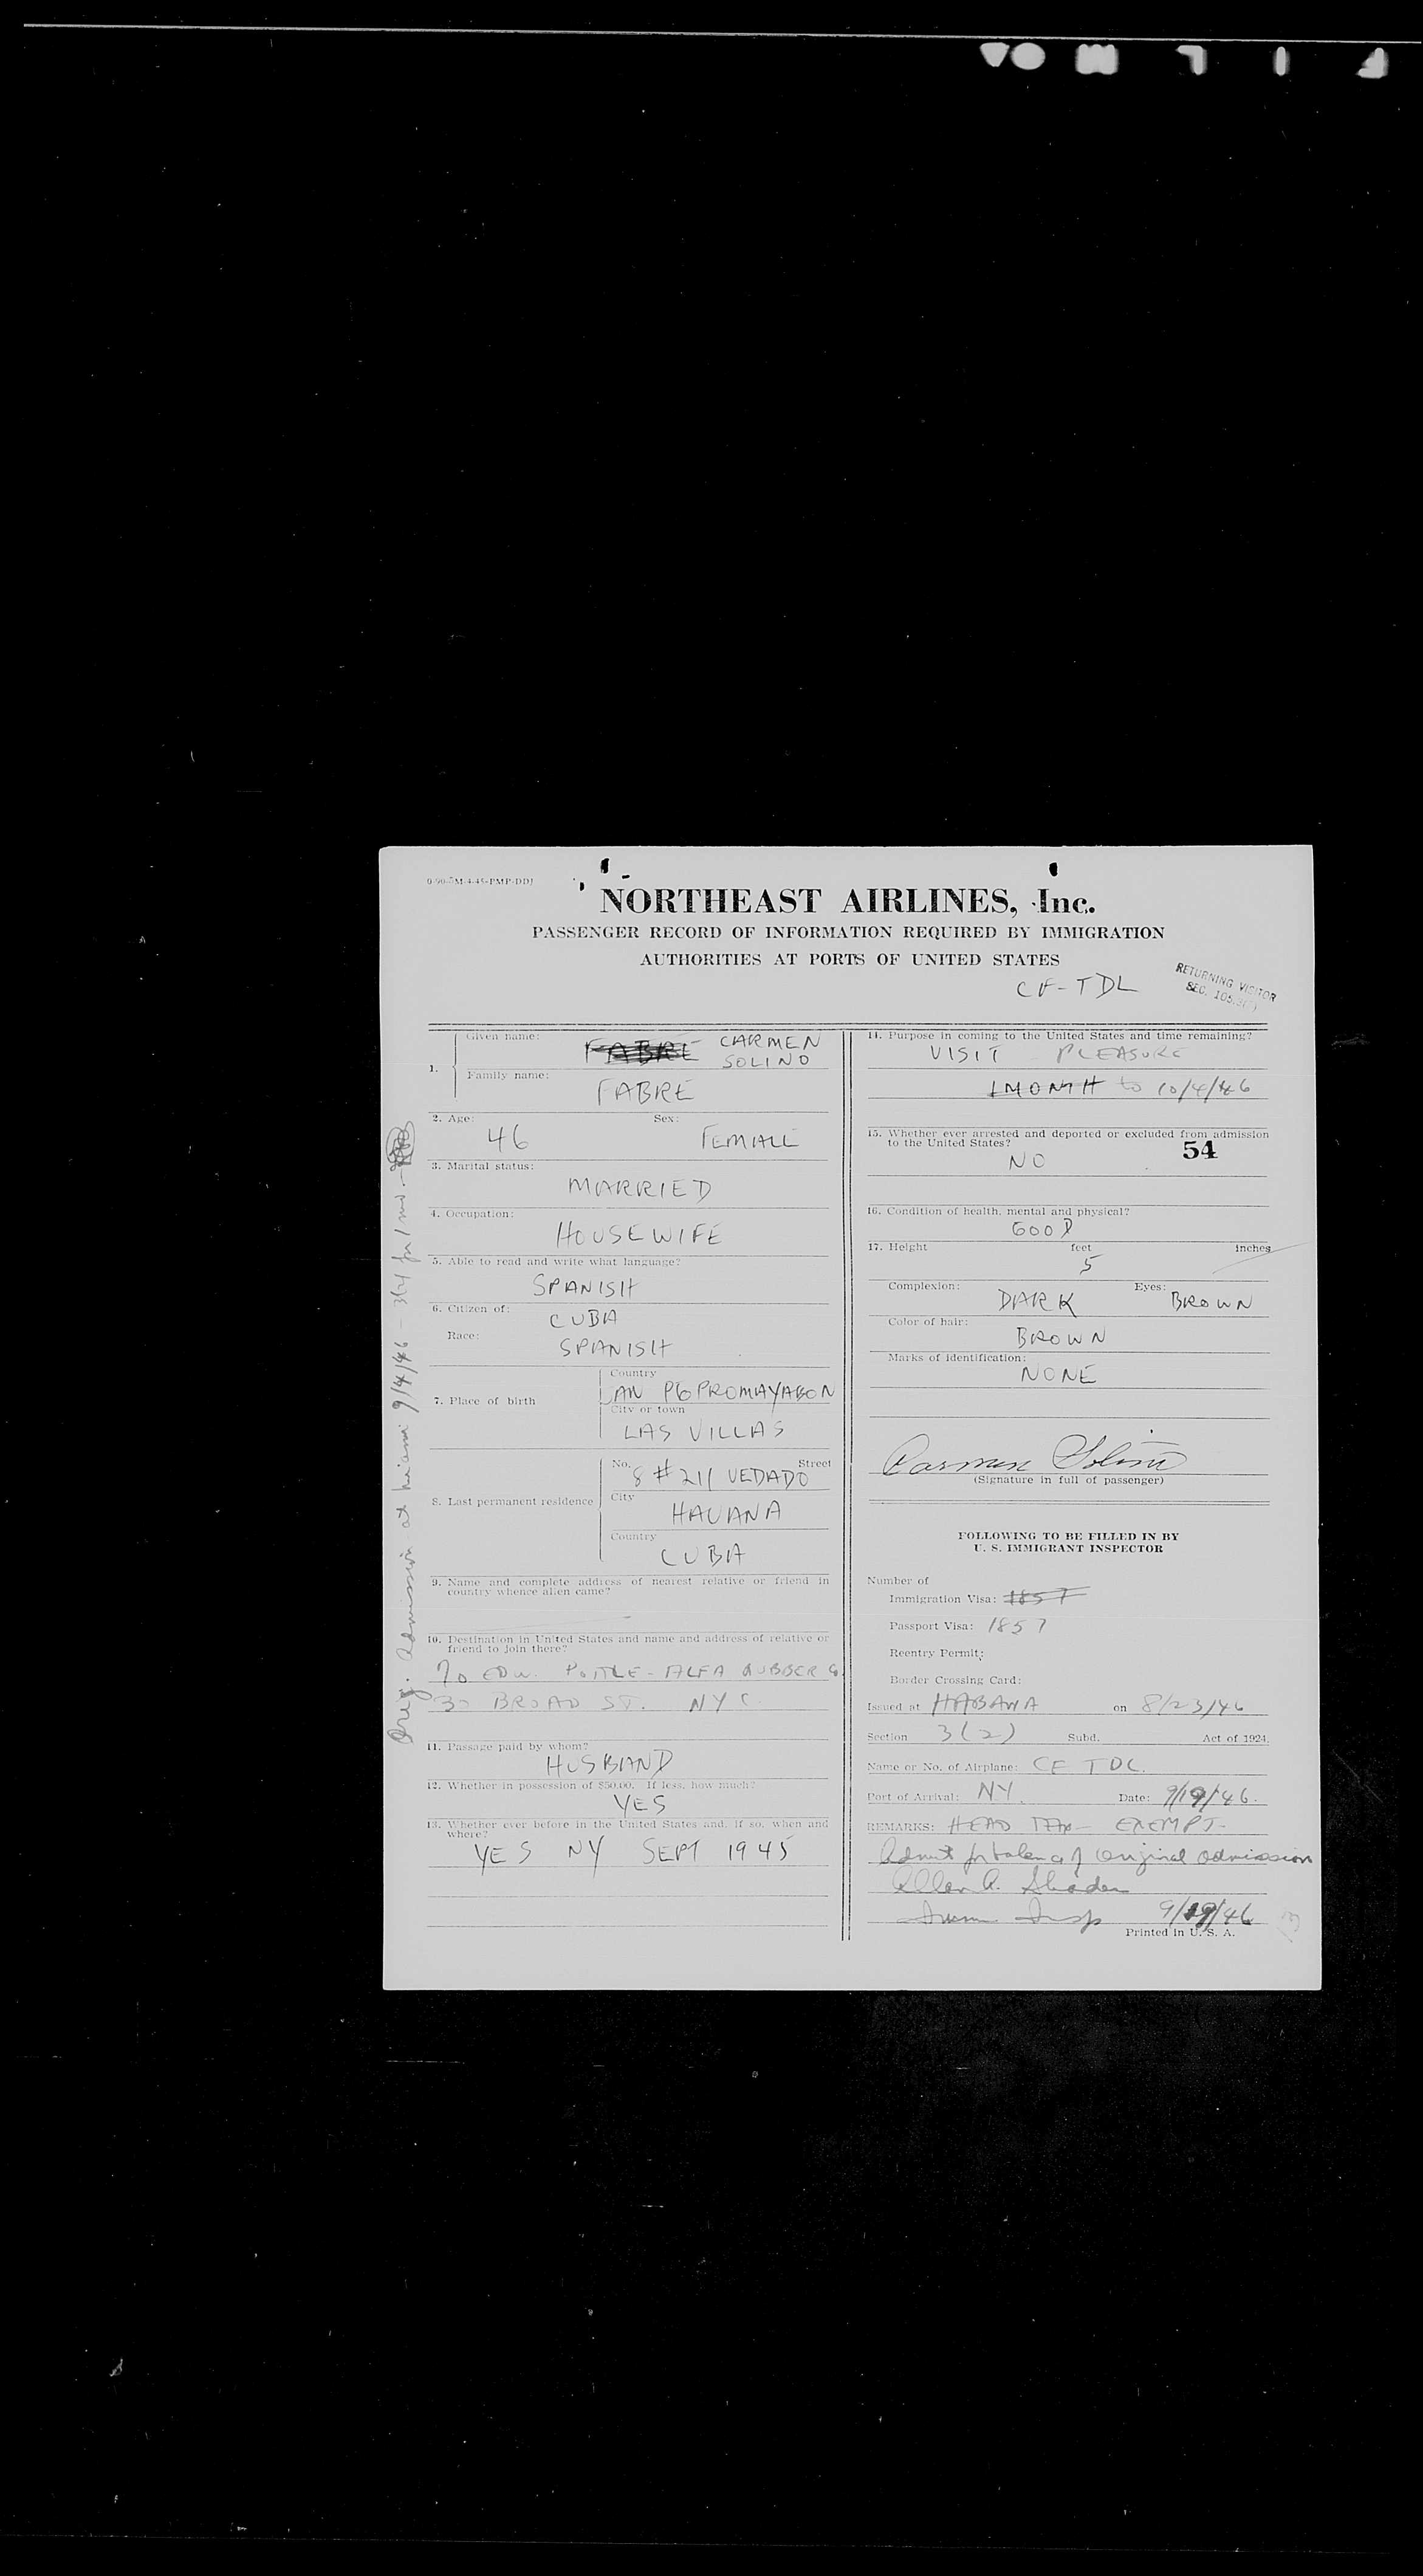 0-90-5M-4-45-PMP-DDJ
NORTHEAST AIRLINES, Inc.
PASSENGER RECORD OF INFORMATION REQUIRED BY IMMIGRATION
AUTHORITIES AT PORTS OF UNITED STATES
CF-TDL
RETURNING VISITOR
SEC. 105.3
1. Given name: FABRE CARMEN
SOLINO
Family name:
FABRE
2. Age: Sex:
46 FEMALE
3. Marital status:
MARRIED
4. Occupation:
HOUSEWIFE
5. Able to read and write what language?
SPANISH
6. Citizen of: CUBA
Race: SPANISH
7. Place of birth
Country
City or town
LAS VILLAS
8. Last permanent residence
No. Street
8 #211 VEDADO
City
HAVANA
Country
CUBA
9. Name and complete address of nearest relative or friend in
country whence alien came?
10. Destination in United States and name and address of relative or
friend to join there?
EDW. ALFA RUBBER Co
30 BROAD ST. NYC
11. Passage paid by whom?
HUSBAND
12. Whether in possession of $50.00. If less, how much?
YES
13. Whether ever before in the United States and, if so, when and
where?
YES NY SEPT 1945
Orig. admission at Miami 9/4/46 - 3(2) for 1 mo.
14. Purpose in coming to the United States and time remaining?
VISIT PLEASURE
1 MONTH to 10/4/46
15. Whether ever arrested and deported or excluded from admission
to the United States?
NO 54
16. Condition of health, mental and physical?
GOOD
17. Height feet inches
5
Complexion: Eyes:
DARK BROWN
Color of hair:
BROWN
Marks of identification:
NONE
Carmen Solino
(Signature in full of passenger)
FOLLOWING TO BE FILLED IN BY
U. S. IMMIGRANT INSPECTOR
Number of
Immigration Visa: 1857
Passport Visa: 1857
Reentry Permit:
Border Crossing Card:
Issued at HABANA on 8/23/46
Section 3(2) Subd. Act of 1924.
Name or No. of Airplane: CF TDL
Port of Arrival: NY. Date: 9/19/46.
REMARKS: HEAD TAX EXEMPT
Admit for balance of original admission
Allen A.
Imm Insp 9/19/46
Printed in U. S. A.